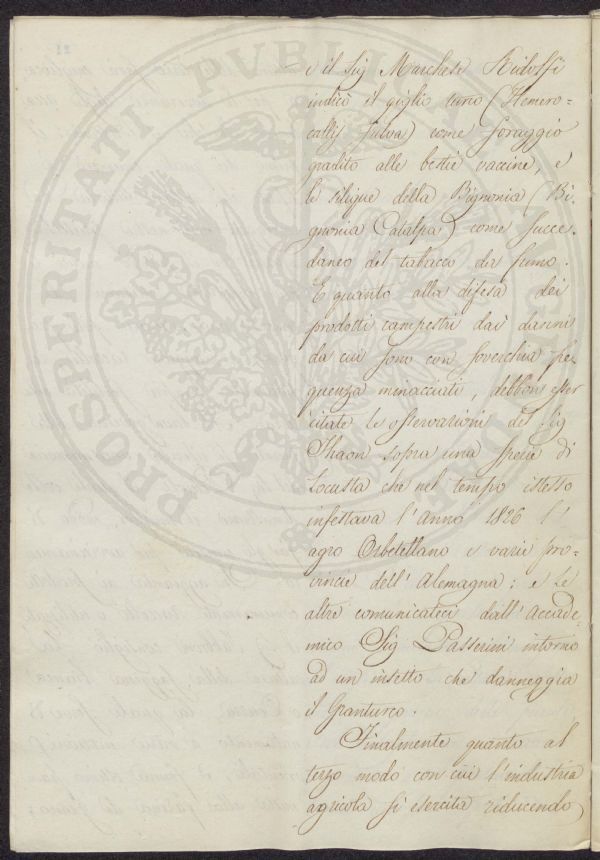 e il Sig Marchese Ridolfi
indicò il giglio turco (Hemero=
callis fulva) come foraggio
gradito alle bestie vaccine, e
le silique della Bignonia (Bi=
gnonia Catalpa) come succe=
daneo del tabacco da fumo.
E quanto alla difesa dei
prodotti campestri dai danni
da cui sono con soverchia fre
quenza minacciati, debbon esser
citate le osservazioni del Sig
Thaon sopra una specie di
Locusta che nel tempo istesso
infestava l'Anno 1826 l'
agro Orbetellano e varie pro=
vincie dell'Alemagna: e le
altre comunicateci dall'Accade=
mico Sig Passerini intorno
ad un insetto che danneggia
il Granturco.
Finalmente quanto al
terzo modo con cui l'industria
agricola si esercita riducendo
PROSPERITATI PVBLICAE